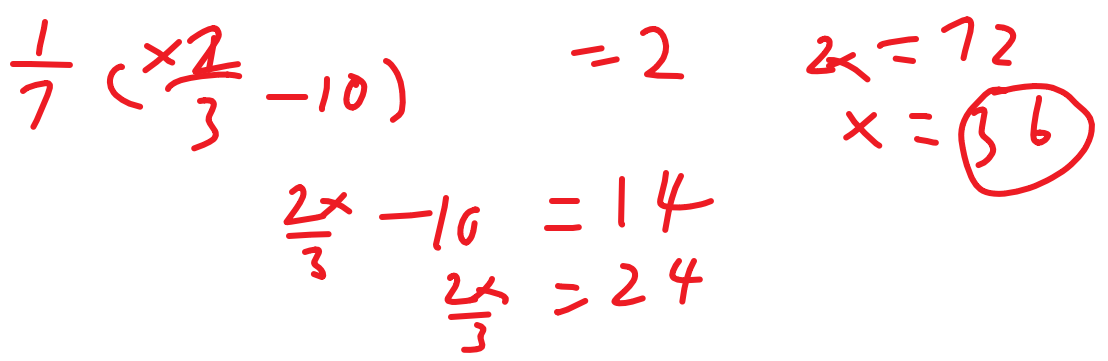 1/7 (x2/3 - 10) = 2
2x/3 - 10 = 14
2x/3 = 24
2x = 72
x = 36